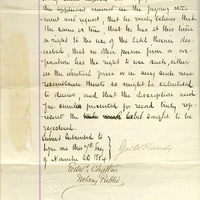 the applicant named in the foregoing state-
ment and request, that he verily believes that
the same is true, that he has at this time
a right to the use of the label therein des-
cribed, that no other person firm or cor-
poration has the right to such use, either
in the identical form or in any such near
resemblance thereto as might be calculated
to deceive and that the description and
fac-similes presented for record truly rep-
resent the label sought to be
registered.
Sworn & Subscribed to
before me this day
of November AD 1884
Notary Public